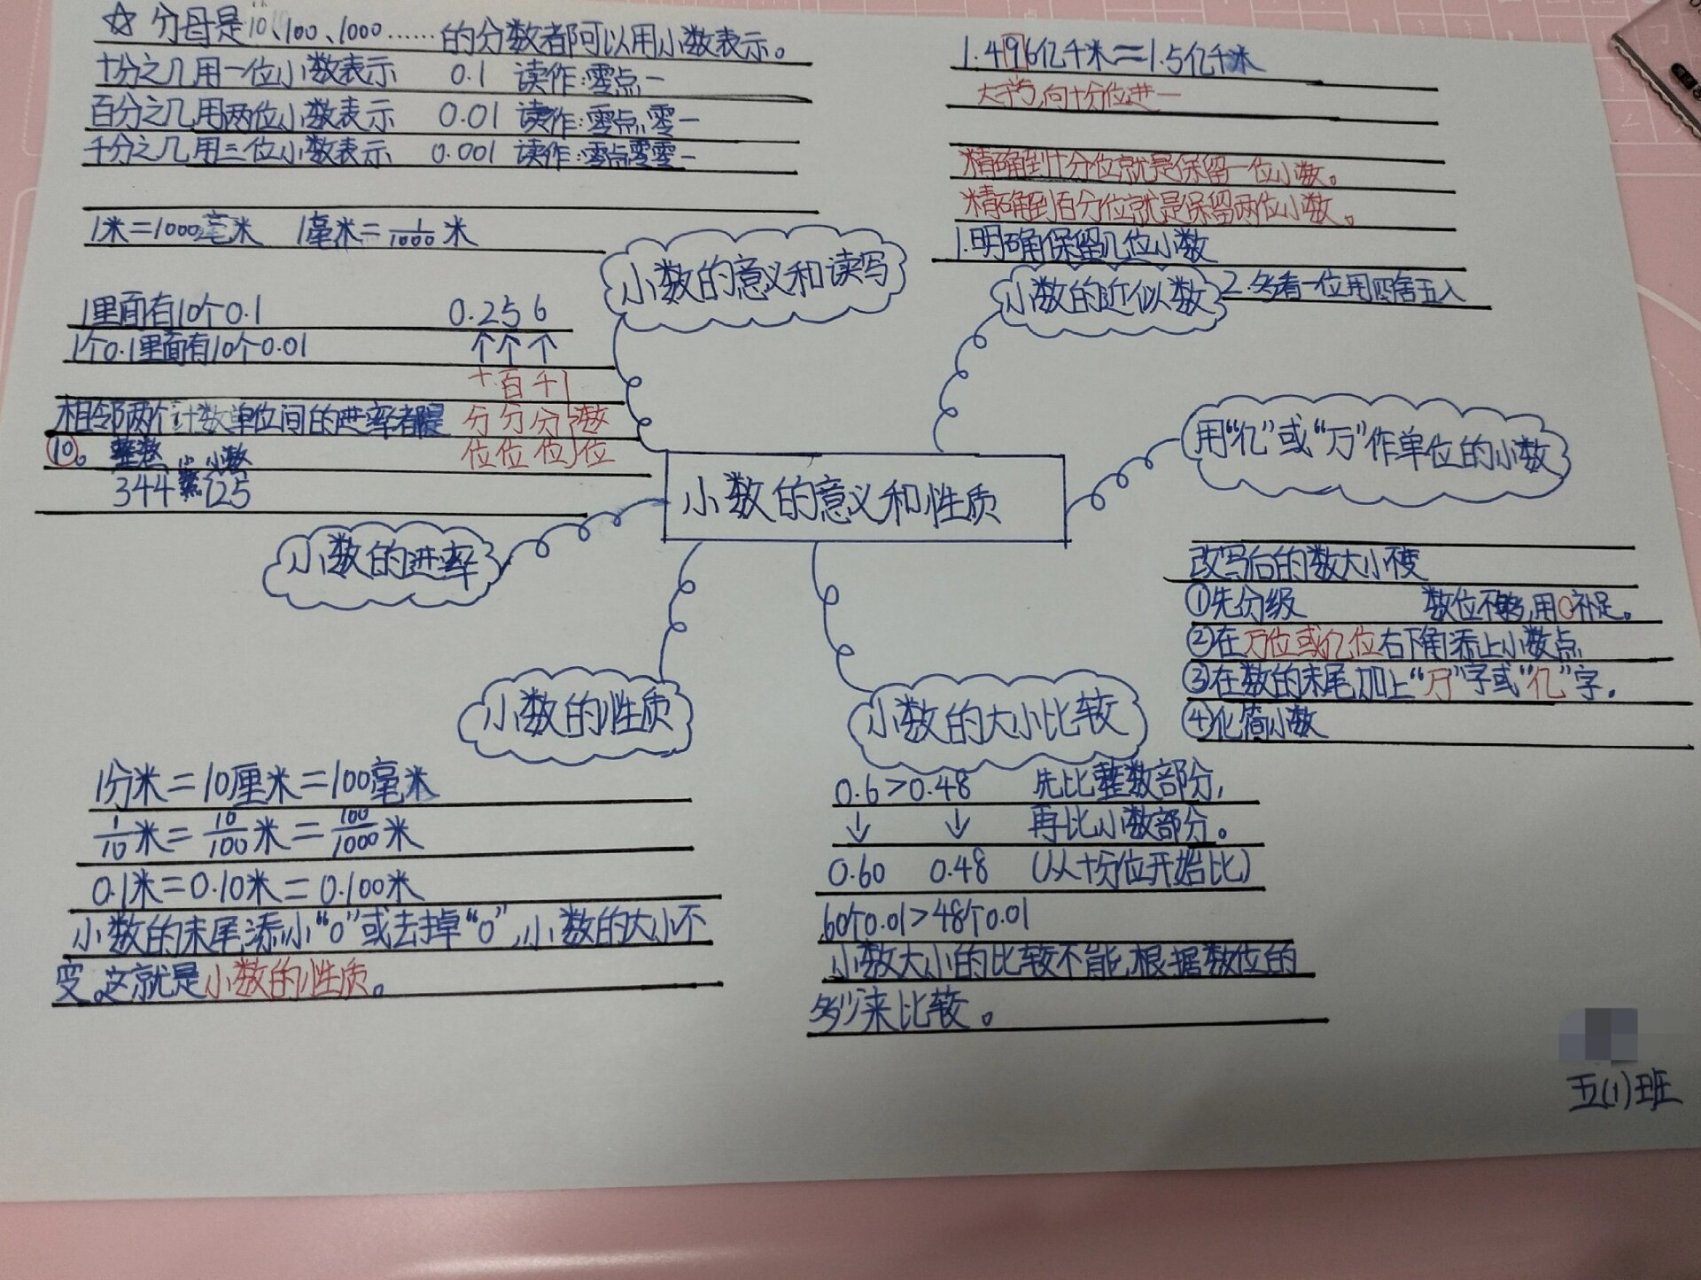 ☆ 分母是10、100、1000……的分数都可以用小数表示。
十分之几用一位小数表示 0.1 读作:零点一
百分之几用两位小数表示 0.01 读作:零点零一
千分之几用三位小数表示 0.001 读作:零点零零一
1米=1000毫米 1毫米=1/1000米
小数的意义和读写
1里面有10个0.1
1个0.1里面有10个0.01
相邻两个计数单位间的进率都是
10。
整数 小数
344 125
0.256
↑↑↑
十百千
分分分数
位位位位
小数的进率
1.496亿千米≈1.5亿千米
大于5,向十分位进一
精确到十分位就是保留一位小数。
精确到百分位就是保留两位小数。
1.明确保留几位小数
小数的近似数
2.多看一位用四舍五入
用“亿”或“万”作单位的小数
改写后的数大小不变
①先分级 数位不够,用0补足。
②在万位或亿位右下角添上小数点
③在数的末尾加上“万”字或“亿”字.
④化简小数
小数的意义和性质
小数的性质
1分米=10厘米=100毫米
1/10米=10/100米=100/1000米
0.1米=0.10米=0.100米
小数的末尾添小“0”或去掉“0”,小数的大小不
变。这就是小数的性质。
小数的大小比较
0.6>0.48 先比整数部分,
↓ ↓ 再比小数部分。
0.60 0.48 (从十分位开始比)
60个0.01>48个0.01
小数大小的比较不能,根据数位的
多少来比较。
五(1)班